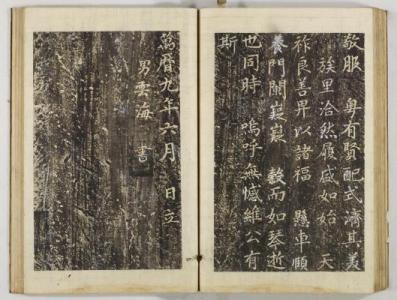 敬服 粤有賢配式濟其美
族里洽然履戚如始 天
祚良善畀以諸福 懸車顧
養門闌巍巍 鼓而如琴逝
也同時 嗚呼無憾維公有
斯
萬曆九年六月 日立
男雲海 書